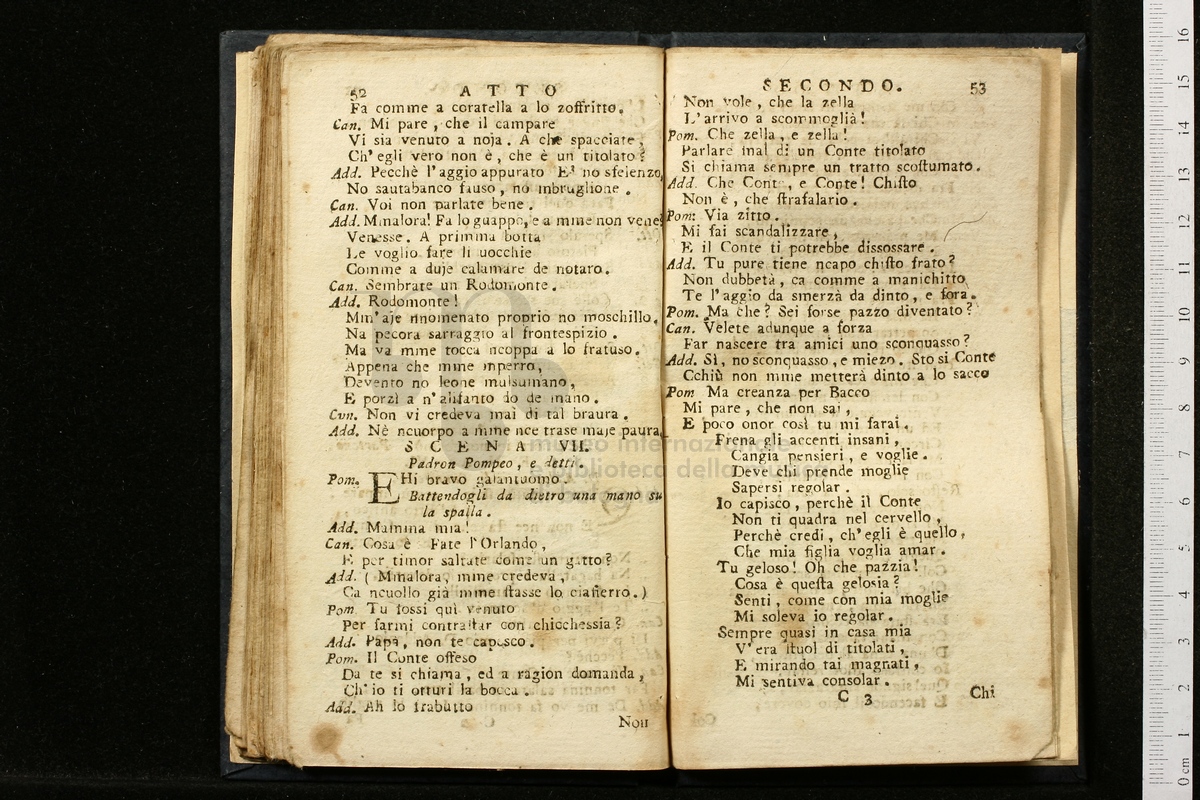 52 ATTO
Fa comme a coratella a lo zoffritto.
Can. Mi pare, che il campare
Vi sia venuto a noja. A che spacciate,
Ch'egli vero non è, che è un titolato?
Add. Pecchè l'aggio appurato E' no sfelenzo,
No sautabanco fauso, no mbruglione.
Can. Voi non parlate bene.
Add. Mmalora! Fa lo guappo, e a mme non vene?
Venesse. A primma botta
Le voglio fare li uocchie
Comme a duje calamare de notaro.
Can. Sembrate un Rodomonte.
Add. Rodomonte!
Mm'aje nnomenato proprio no moschillo,
Na pecora sarraggio al frontespizio.
Ma va mme tocca ncoppa a lo fratuso.
Appena che mme mperro,
Devento no leone mulsumano,
E porzì a n'alifanto do de mano.
Cvn. Non vi credeva mai di tal braura.
Add. Nè ncuorpo a mme nce trase maje paura
SCENA VII.
Padron Pompeo, e detti.
Pom. EHi bravo galantuomo.
Battendogli da dietro una mano su
la spalla.
Add. Mamma mia!
Can. Cosa è Fate l'Orlando,
E per timor saltate come un gatto?
Add. (Mmalora, mme credeva,
Ca ncuollo già mme stasse lo cianferro.)
Pom. Tu fossi quì venuto
Per farmi contrastar con chicchessia?
Add. Papà, non te capesco.
Pom. Il Conte offeso
Da te si chiama, ed a ragion domanda,
Ch'io ti otturi la bocca.
Add. Ah lo frabutto
Non
SECONDO. 53
Non vole, che la zella
L'arrivo a scommoglià!
Pom. Che zella, e zella!
Parlare mal di un Conte titolato
Si chiama sempre un tratto scostumato.
Add. Che Conte, e Conte! Chisto
Non è, che strafalario.
Pom: Via zitto.
Mi fai scandalizzare,
E il Conte ti potrebbe dissossare.
Add. Tu pure tiene ncapo chisto frato?
Non dubbetà, ca comme a manichitto
Te l'aggio da smerzà da dinto, e fora.
Pom. Ma che? Sei forse pazzo diventato?
Can. Velete adunque a forza
Far nascere tra amici uno sconquasso?
Add. Sì, no sconquasso, e miezo. Sto si Conte
Cchiù non mme metterà dinto a lo sacco
Pom Ma creanza per Bacco
Mi pare, che non sai,
E poco onor così tu mi farai.
Frena gli accenti insani,
Cangia pensieri, e voglie.
Deve chi prende moglie
Sapersi regolar.
Io capisco, perchè il Conte
Non ti quadra nel cervello,
Perchè credi, ch'egli è quello,
Che mia figlia voglia amar.
Tu geloso! Oh che pazzia!
Cosa è questa gelosia?
Senti, come con mia moglie
Mi soleva io regolar.
Sempre quasi in casa mia
V'era stuol di titolati,
E mirando tai magnati,
Mi sentiva consolar.
C 3 Chi
museo internazionale
e biblioteca della musica
0 cm 1 2 3 4 5 6 7 8 9 10 11 12 13 14 15 16